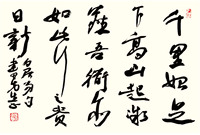 千里始足
下高山起微
塵吾道亦
如此行之貴
日新
白居易句